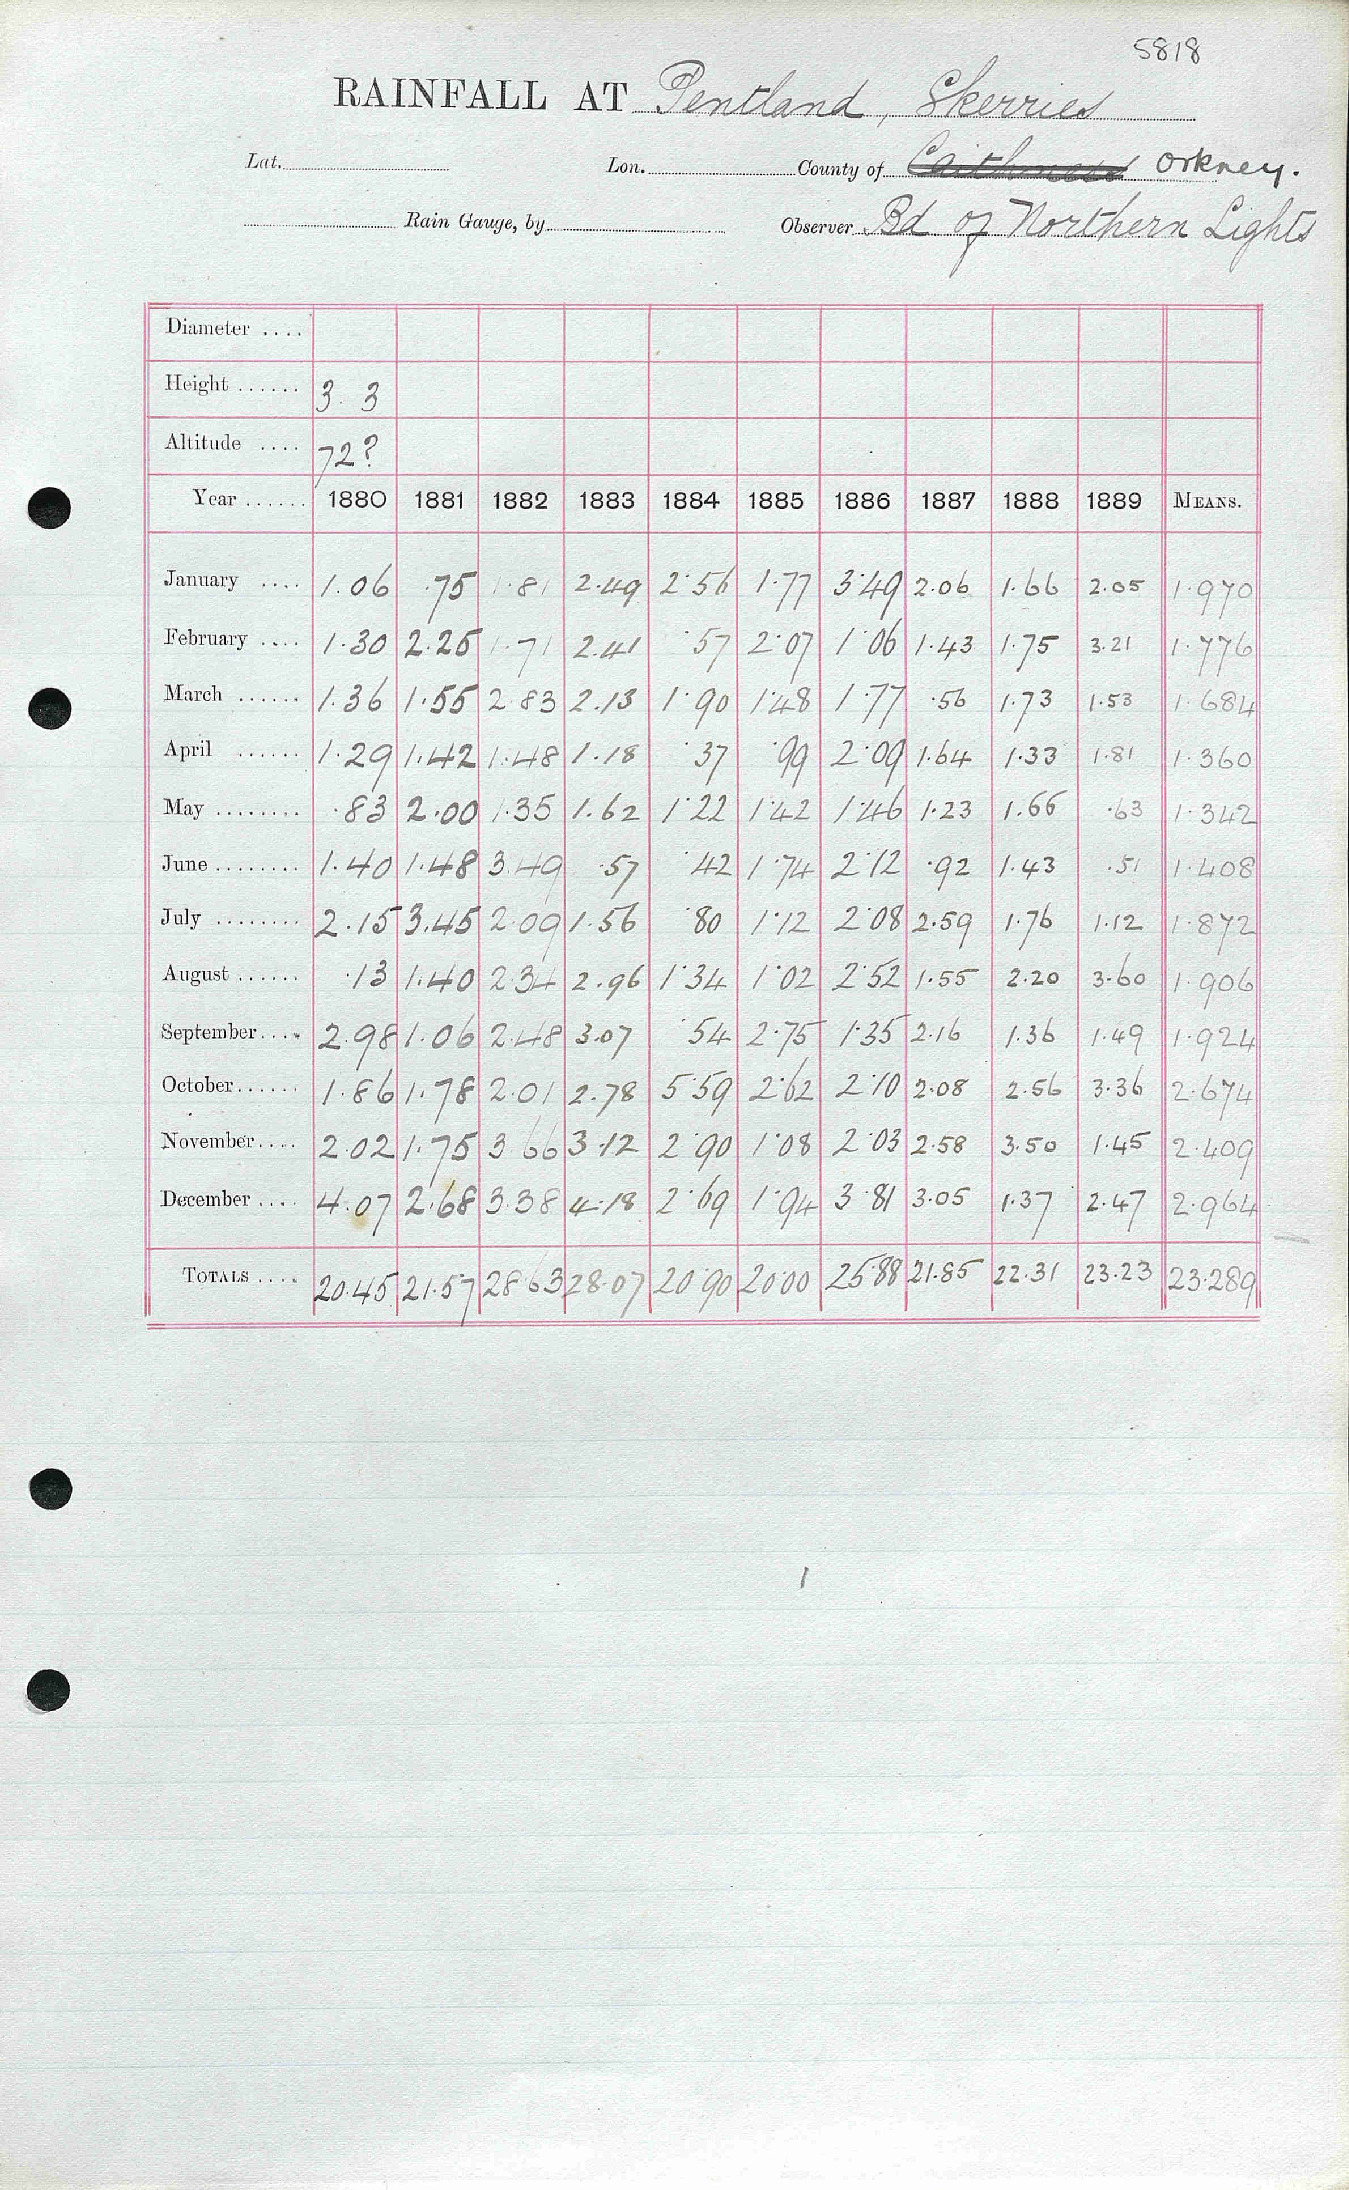 5818
RAINFALL AT Pentland, Skerries
Lat. Lon. County of Caithness Orkney.
Rain Gauge, by Observer Bd of Northern Lights
Diameter ....
Height ...... 3. 3
Altitude .... 72?
Year ...... 1880 1881 1882 1883 1884 1885 1886 1887 1888 1889 MEANS.
January .... 1.06 .75 1.81 2.49 2.56 1.77 3.49 2.06 1.66 2.05 1.970
February .... 1.30 2.25 1.71 2.41 .57 2.07 1.06 1.43 1.75 3.21 1.776
March ...... 1.36 1.55 2.83 2.13 1.90 1.48 1.77 .56 1.73 1.53 1.684
April ...... 1.29 1.42 1.48 1.18 .37 .99 2.09 1.64 1.33 1.81 1.360
May ........ .83 2.00 1.35 1.62 1.22 1.42 1.46 1.23 1.66 .63 1.342
June ........ 1.40 1.48 3.49 .57 .42 1.74 2.12 .92 1.43 .51 1.408
July ........ 2.15 3.45 2.09 1.56 .80 1.12 2.08 2.59 1.76 1.12 1.872
August ...... .13 1.40 2.34 2.96 1.34 1.02 2.52 1.55 2.20 3.60 1.906
September .... 2.98 1.06 2.48 3.07 .54 2.75 1.35 2.16 1.36 1.49 1.924
October ...... 1.86 1.78 2.01 2.78 5.59 2.62 2.10 2.08 2.56 3.36 2.674
November .... 2.02 1.75 3.66 3.12 2.90 1.08 2.03 2.58 3.50 1.45 2.409
December .... 4.07 2.68 3.38 4.18 2.69 1.94 3.81 3.05 1.37 2.47 2.964
TOTALS .... 20.45 21.57 28.63 28.07 20.90 20.00 25.88 21.85 22.31 23.23 23.289